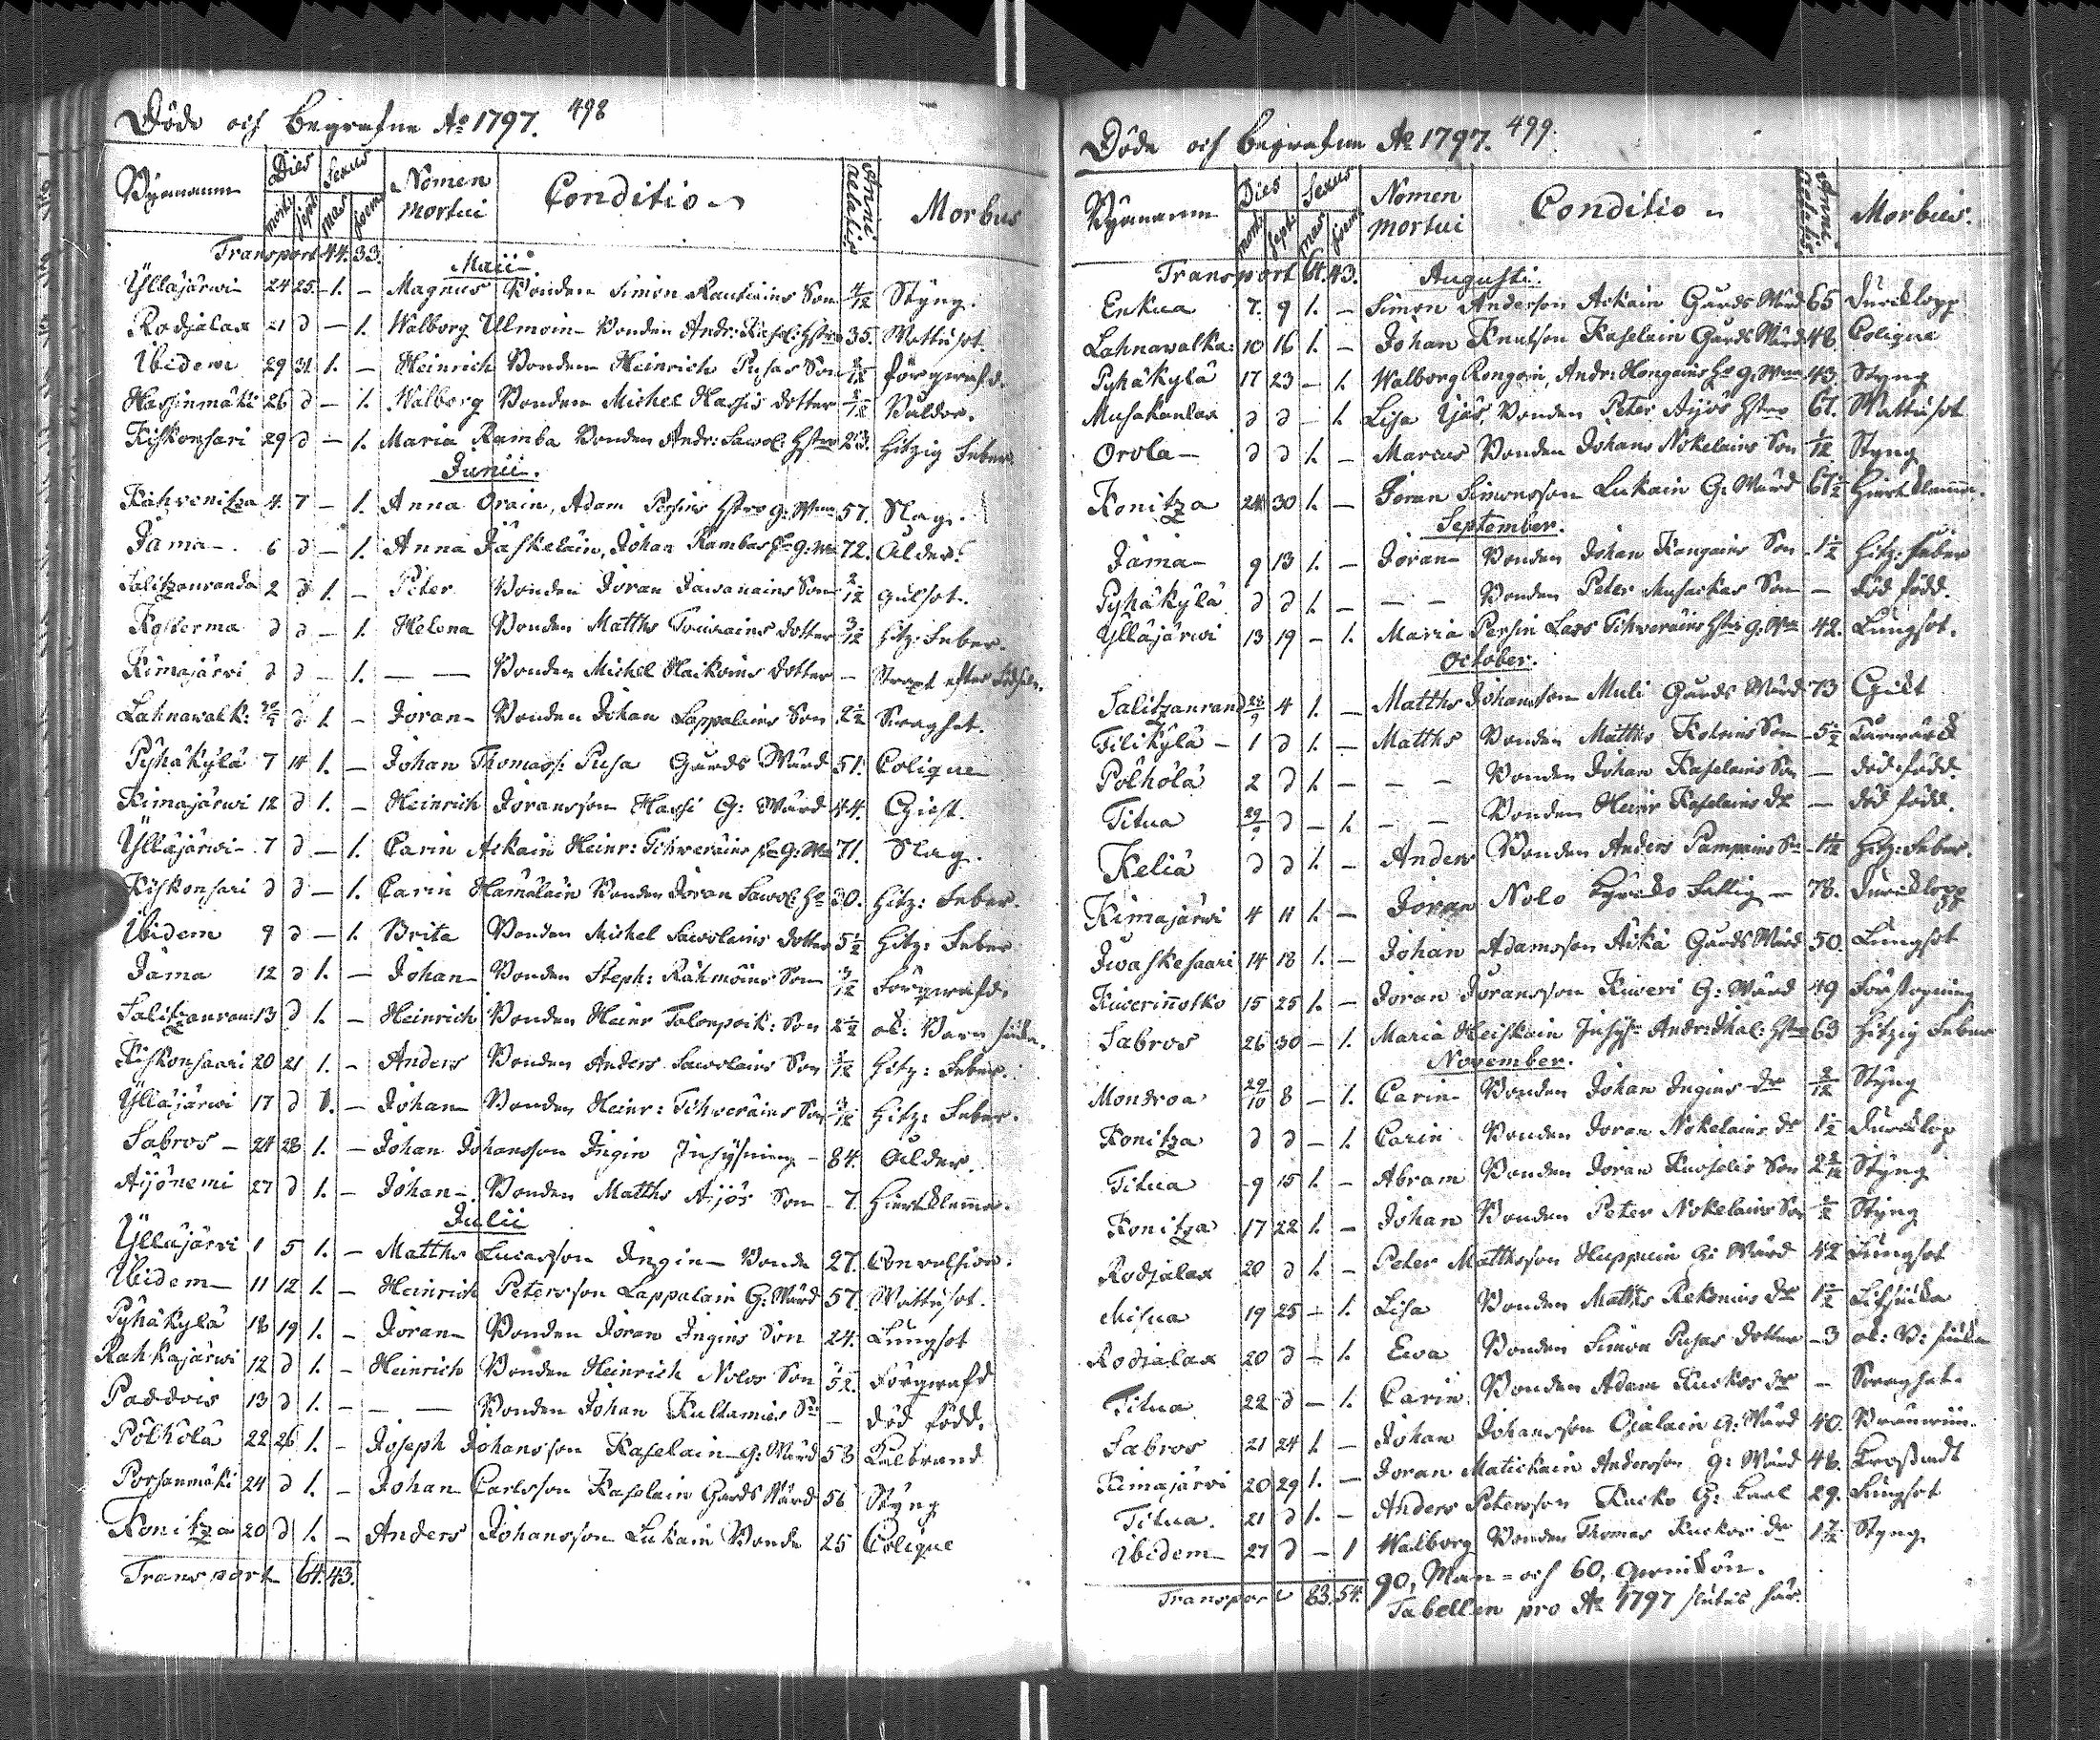 Döde och Begrafne Ao 1797. 498
Bÿarnamn Dies Sexus Nomen mortui Conditio Anni aetatis Morbus
morti sept: mas foem
Transport 44. 33. Maii
Ylläjärwi 24 25 1. — Magnus Bonden Simon Rautiains Son 4/12 Styng.
Rodjalax 21 d — 1. Walborg Ullmoin Bonden Andr: Kasel: Hstro 35. Wattusot.
Ibidem 29 31 1. — Heinrich Bonden Heinrich Pusas Son Förqwafd.
Hassinmäki 26 d — 1. Walborg Bonden Michel Hassis dotter
Kiskonsari 29 d — 1. Maria Ramba Bonden Andr: Sawol: Hstro 23. Hitzig Feber
Junii.
Kahvenitza 4. 7 — 1. Anna Orain, Adam Persins Hstro G: 57. Slag.
Jama 6 d — 1. Anna Jäskeläin, Johan Rambas G: 72. Ålder.
Salitzanranda 2 d 1. — Peter Bonden Jöran Sawanains Son 2/12 Gulsot.
Kosterma d d — 1. Helena Bonden Matths Touirains dotter 3/12 Hitz: Feber.
Kimajärvi d d — 1. — — Bonden Michel Haikoins dotter — Straxt efter födseln.
Lahnawalk: d 1. — Jöran Bonden Johan Lappalains Son 2 1/2
Pyhäkylä 7 14 1. — Johan Thomass: Pusa Gårds Wärd 51. Colique
Kimajärwi 12 d 1. — Heinrich Jöransson Hassi G: Wärd 44. Gickt.
Ylläjärwi 7 d — 1. Carin Ackain Heinr: Tihveräins G: 71. Slag.
Kiskonsari d d — 1. Carin Hämäläin Bonden Jöran Sawol: 30. Hitz: Feber.
Ibidem 9 d — 1. Brita Bonden Michel Sawolains dotter 5 1/2 Hitz: Feber
Jama 12 d 1. — Johan Bonden Steph: Rähmöins Son 3/12 Förqwafd.
Salitzanrand 13 d 1. — Heinrich Bonden Heinr Tolonpoik: Son 2 1/2 ob: Barn siukd.
Kiskonsaari 20 21 1. — Anders Bonden Anders Sawolains Son Hitz: Feber.
Ylläjärwi 17 d 1. — Johan Bonden Heinr: Tihveräins Son Hitz: Feber.
Sabros 24 28 1. — Johan Johansson Ingin Inhysning 84. Ålder.
Aijönemi 27 d 1. — Johan Bonden Matths Aijös Son 7. Hiertklemma.
Julii
Ylläjärvi 1 5 1. — Matths Lucasson Ingin Bonde 27. Convulsion.
Ibidem 11 12 1. — Heinrich Petersson Lappalain G: Wärd 57. Wattusot.
Pyhäkylä 18 19 1. — Jöran Bonden Jöran Ingins Son 24. Lungsot
Rahkajärwi 12 d 1. — Heinrich Bonden Heinrich Nolos Son Förqwafd
Paddois 13 d 1. — — — Bonden Johan Kultamies Sn — död född.
Pölhölä 22 26 1. — Joseph Johansson Kaselain G: Wärd 53 Kalbrand
Porsanmäki 24 d 1. — Johan Carlsson Kaselain Gårds Wärd 56 Styng
Konitza 20 d 1. — Anders Johansson Lukain Bonde 25 Colique
Transport 64. 43.
Döde och Begrafne Ao 1797. 499.
Bÿarnamn Dies Sexus Nomen mortui Conditio Anni aetatis Morbus.
morti sept: mas foem
Transport 64. 43. Augusti.
Enkua 7. 9 1. — Simon Anderson Ackain Gårds Wärd 65 Durcklopp
Lahnawalka: 10 16 1. — Johan Knutson Kaselain Gårds Wärd 48. Colique
Pyhäkylä 17 23 — 1. Walborg Rongoin, Andr: Hongains G: 43. Styng
Musakanlax d d — 1. Lisa Bonden Peter Aijös Hstro 67. Wattusot
Orola d d 1. — Marcus Bonden Johans Nokelains Son Styng
Konitza 24 30 1. — Jöran Simonsson Lukain G: Wärd 67 1/2 Hiertklemma.
September.
Jama 9 13 1. — Jöran Bonden Johan Kangains Son 1 1/2 Hitz: Feber
Pyhäkylä d d 1. — — — Bonden Peter Musackas Son — död född.
Ylläjärwi 13 19 — 1. Maria Persin Lars Tihveräins Hstr G: 42. Lungsot.
October.
Salitzanrand 28/9 4 1. — Matths Johansson Muli Gårds Wärd 73 Gickt
Tilikylä 1 d 1. — Matths Bonden Matths Kokoins Son 5 1/2
Pölhölä 2 d 1. — — — Bonden Johan Kaselains Son — död född.
Titua 29/9 d — 1. — — Bonden Heinr Kaselains dr — död född.
Keliä d d 1. — Anders Bonden Anders Pampains Sn Hitz: Feber.
Kimajärwi 4 11 1. — Jöran Nolo Kyrcko Fattig — 78. Durcklopp
Iwaskesaari 14 18 1. — Johan Adamsson Äikä Gårds Wärd 50. Lungsot
Kiwerinotko 15 25 1. — Jöran Jöransson Kiweri G: Wärd 49 Förstopning
Sabros 26 30 — 1. Maria Heiskain Inhys: Andr: Hstro 63 Hitzig Feber
November.
Mondroa 29/10 8 — 1. Carin Bonden Johan Ingins dr Styng
Konitza d d — 1. Carin Bonden Jöran Nokelains dr 1 1/2 Durcklop
Titua 9 15 1. — Abram Bonden Jöran Kuosels Son Styng
Konitza 17 22 1. — Johan Bonden Peter Nokelains Son Styng
Rodjalax 20 d 1. — Peter Matthsson Huppuin G: Wärd 42 Lungsot
Misua 19 25 — 1. Lisa Bonden Matths Rekonius dr 1 1/2
Rodjalax 20 d — 1. Ewa Bonden Simon Pusas dotter 3 ob: B: siukd
Titua 22 d — 1. Carin Bonden Adam Kuckos dr —
Sabros 21 24 1. — Johan Johansson Ojalain G: Wärd 40.
Kimajärvi 20 29 1. — Jöran Matickain Andersson G: Wärd 48.
Titua. 21 d 1. — Anders Petersson Kucko G: Karl 29. Lungsot
Ibidem 27 d — 1 Walborg Bonden Thomas Kuckos dr Styng
Transport 83. 54. 90, Man- och 60, Qwinkön.
Tabellen pro Ao 1797 slutes här.